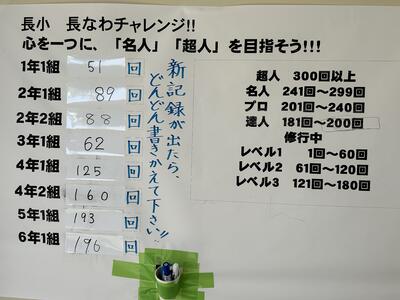 長小　長なわチャレンジ!!
心を一つに、「名人」「超人」を目指そう!!!
1年1組 51 回
2年1組 89 回
2年2組 88 回
3年1組 62 回
4年1組 125 回
4年2組 160 回
5年1組 193 回
6年1組 196 回
新記録が出たら、
どんどん書きかえて下さい!!
超人　300回以上
名人　241回～299回
プロ　201回～240回
達人　181回～200回
修行中
レベル1　1回～60回
レベル2　61回～120回
レベル3　121回～180回